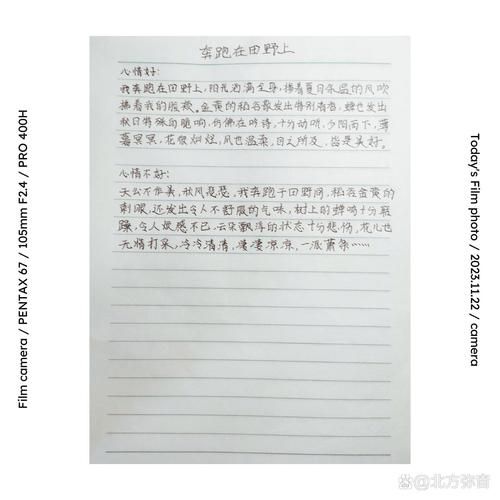 奔跑在田野上
心情好:
我奔跑在田野上,阳光洒满全身,携着夏日余温的风吹
拂着我的脸颊。金黄的稻谷散发出特别清香,蝉也发出
秋日特殊的脆响,仿佛在吟诗,十分动听,夕阳西下,薄
暮冥冥,花很灿烂,风也温柔,目之所及,皆是美好。
心情不好:
天公不作美,秋风瑟瑟,我奔跑于田野间,稻谷金黄的
刺眼,还发出令人不舒服的气味,树上的蝉鸣十分聒
躁,令人烦感不已,云朵飘浮的状态十分悲伤,花儿也
无精打采,冷冷清清,凄凄凉凉,一派萧条……
Film camera / PENTAX 67 / 105mm F2.4 / PRO 400H
Today's Film photo / 2023.11.22 / camera
@北方弥音